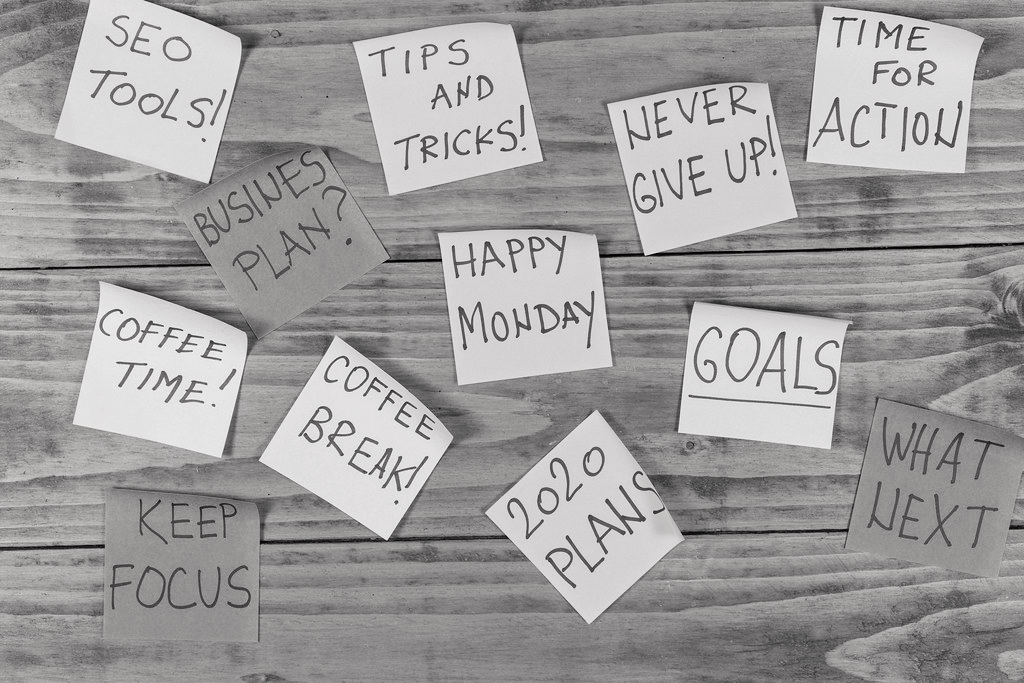 SEO
TOOLS!
TIPS
AND
TRICKS!
NEVER
GIVE UP!
TIME
FOR
ACTION
BUSINES
PLAN?
HAPPY
MONDAY
COFFEE
TIME!
COFFEE
BREAK!
GOALS
WHAT
NEXT
2020
PLANS
KEEP
FOCUS